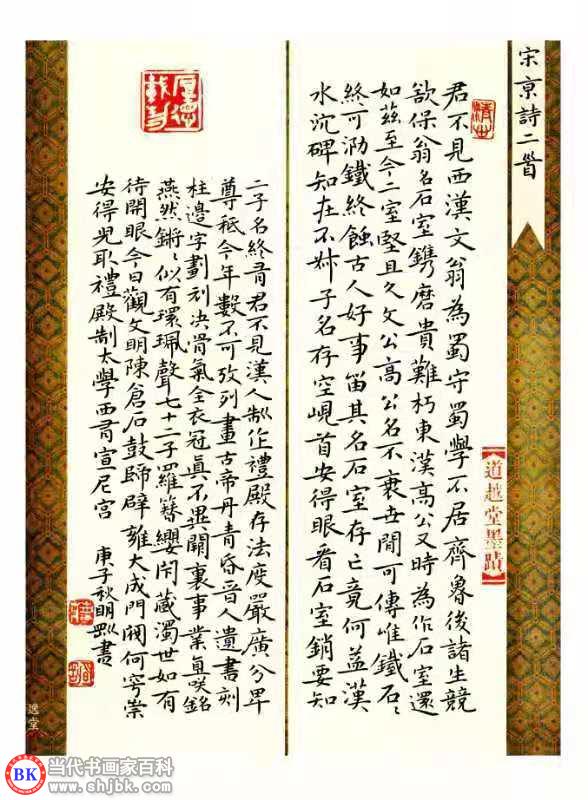 宋京詩二首
君不見西漢文翁為蜀守蜀學不居齊魯後諸生競
欲保翁名石室鐫磨貴難朽東漢高公又時為作石室還
如茲至今二室堅且久文公高公名不衰世間可傳唯鐵石〻
終可泐鐵終蝕古人好事留其名石室存亡竟何益漢
水沉碑知在不叔子名存空峴首安得眼看石室銷要知
二子名終有君不見漢人制作禮殿存法度嚴廣分畀
尊祗今年數不可攷列畫古帝丹青昏晉人遺書刻
柱邊字劃利決骨氣全衣冠真不異闕裏事業真咲銘
燕然鏘〻似有環珮聲七十二子羅簪纓閇藏濁世如有
待開眼今日觀文明陳倉石鼓歸辟雍大成門闢何穹崇
安得先取禮殿制太學西有宣尼宮
庚子秋明
書
厚德載物
道越堂墨蹟
逸堂
BK
当代书画家百科
www.shjbk.com